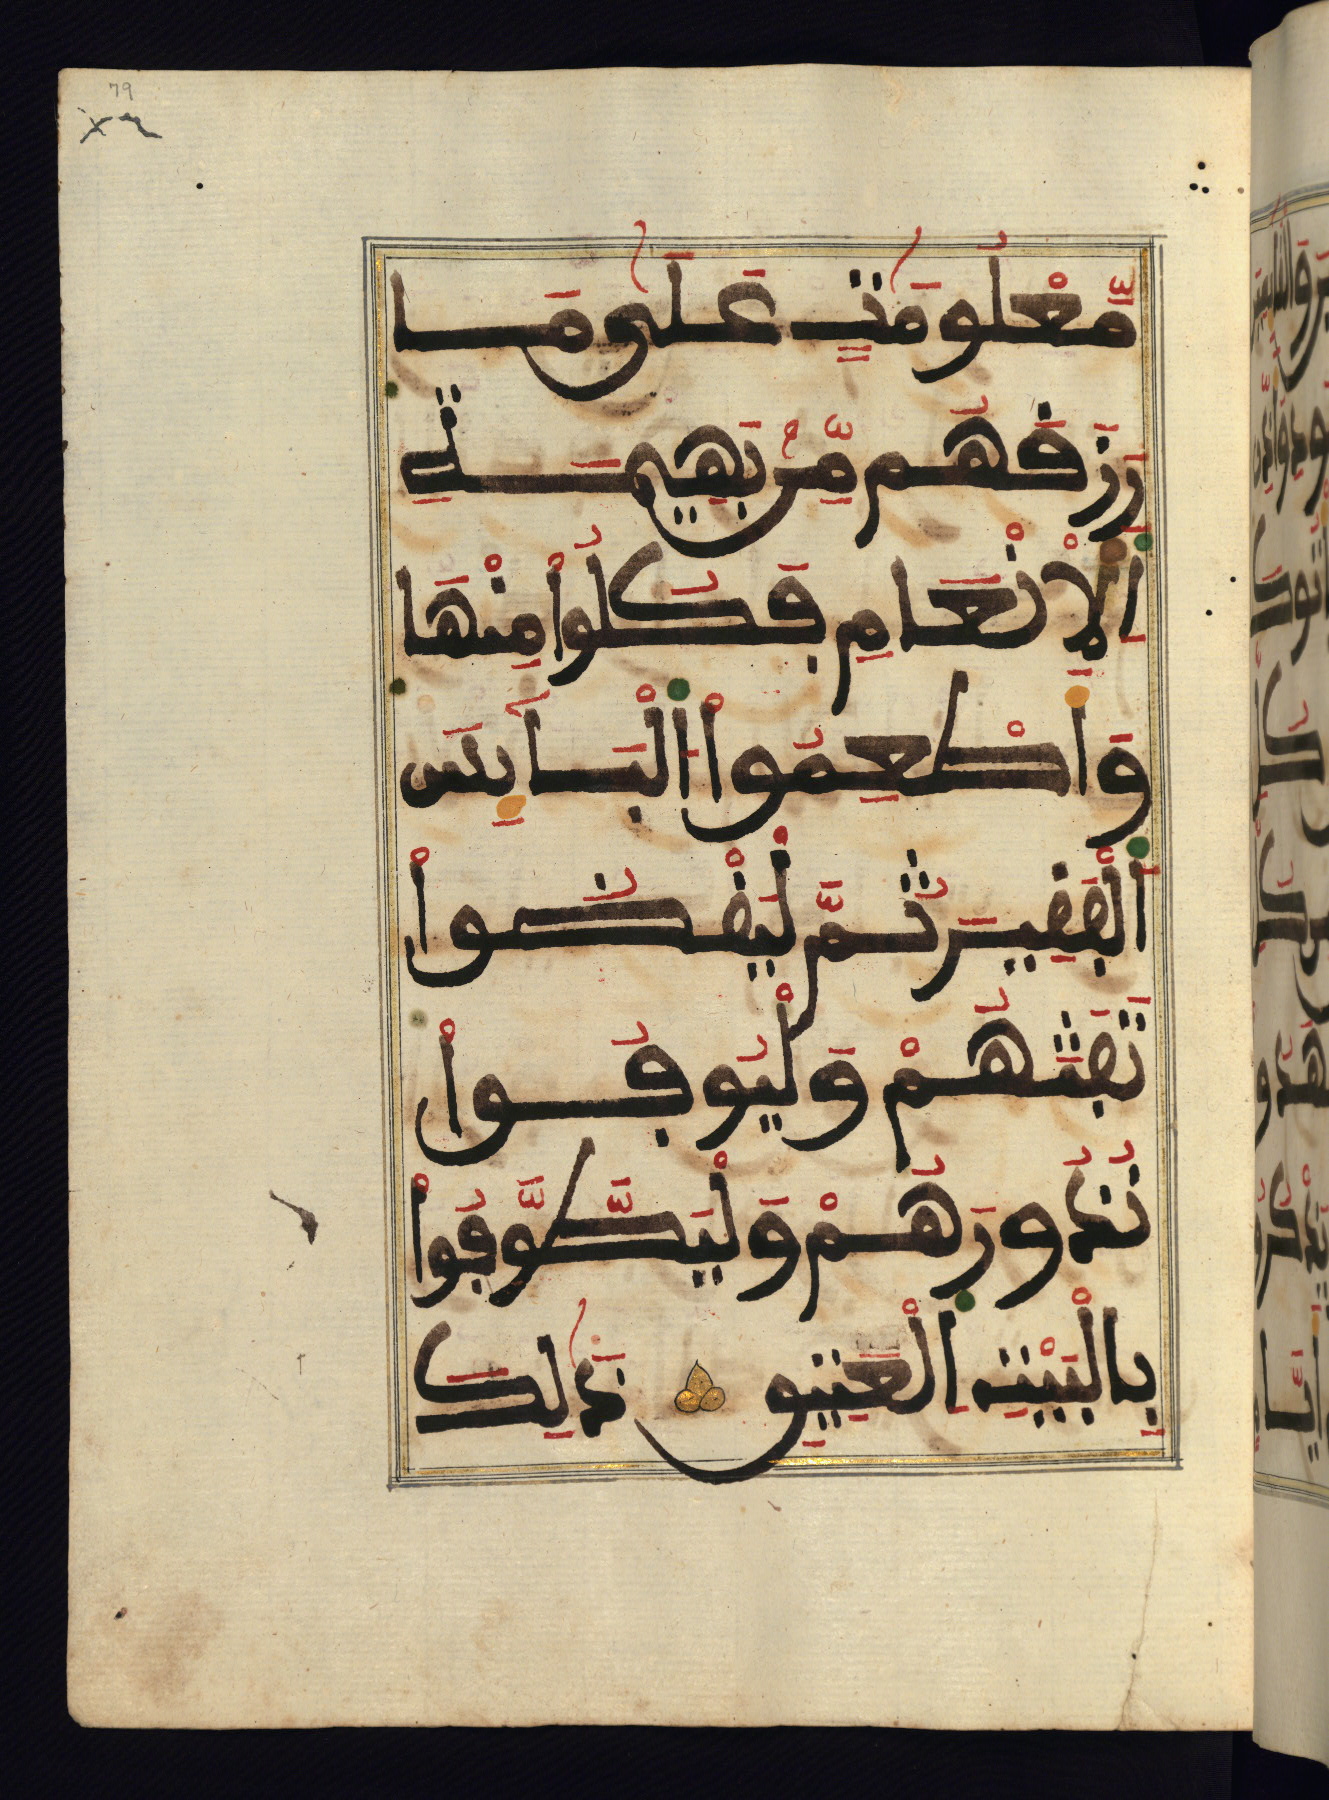 79
مَّعْلُومَٰتٍ عَلَىٰ مَا
رَزَقَهُم مِّنۢ بَهِيمَةِ
اِ۬لَانْعَٰمِ فَكُلُواْ مِنْهَا
وَأَطْعِمُواْ اُ۬لْبَآئِسَ
اَ۬لْفَقِيرَ ثُمَّ لْيَقْضُواْ
تَفَثَهُمْ وَلْيُوفُواْ
نُذُورَهُمْ وَلْيَطَّوَّفُواْ
بِالْبَيْتِ اِ۬لْعَتِيقِ ذَٰلِكَ